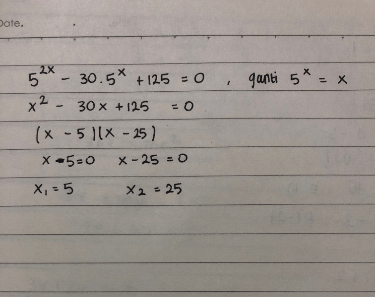 Date.
5^{2x} - 30.5^x + 125 = 0 , ganti 5^x = x
x^2 - 30x + 125 = 0
(x - 5)(x - 25)
x - 5 = 0 x - 25 = 0
x_1 = 5 x_2 = 25